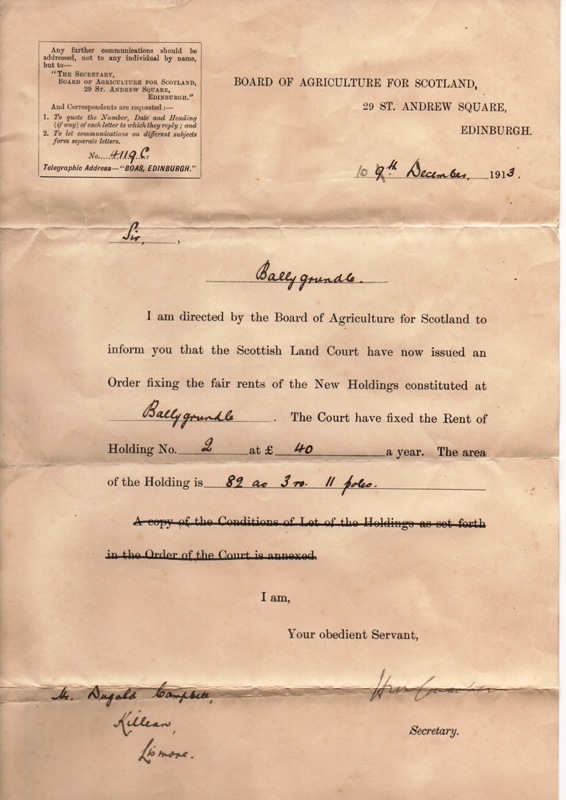 Any further communications should be
addressed, not to any individual by name,
but to—
"THE SECRETARY,
BOARD OF AGRICULTURE FOR SCOTLAND,
29 ST. ANDREW SQUARE,
EDINBURGH."
And Correspondents are requested:—
1. To quote the Number, Date and Heading
(if any) of each letter to which they reply; and
2. To let communications on different subjects
form separate letters.
No. 4119.C.
Telegraphic Address—"BOAS, EDINBURGH."
BOARD OF AGRICULTURE FOR SCOTLAND,
29 ST. ANDREW SQUARE,
EDINBURGH.
10 9th December, 1913.
Sir,
Ballygrundle.
I am directed by the Board of Agriculture for Scotland to
inform you that the Scottish Land Court have now issued an
Order fixing the fair rents of the New Holdings constituted at
Ballygrundle. The Court have fixed the Rent of
Holding No. 2 at £ 40 a year. The area
of the Holding is 82 ac 3 ro. 11 poles.
A copy of the Conditions of Let of the Holdings as set forth
in the Order of the Court is annexed.
I am,
Your obedient Servant,
Mr. Dugald Campbell,
Killean,
Lismore.
Secretary.